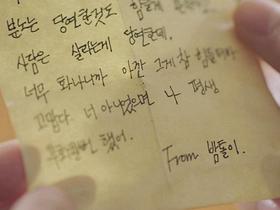 분노는 당연한것도 힘들게
사람은 살라는게 당연한데.
너무 화나니까 아깐 그게 참 힘들더라
고맙다. 너 아니었으면 나 평생
후회할뻔 했어.
From 밤톨이.